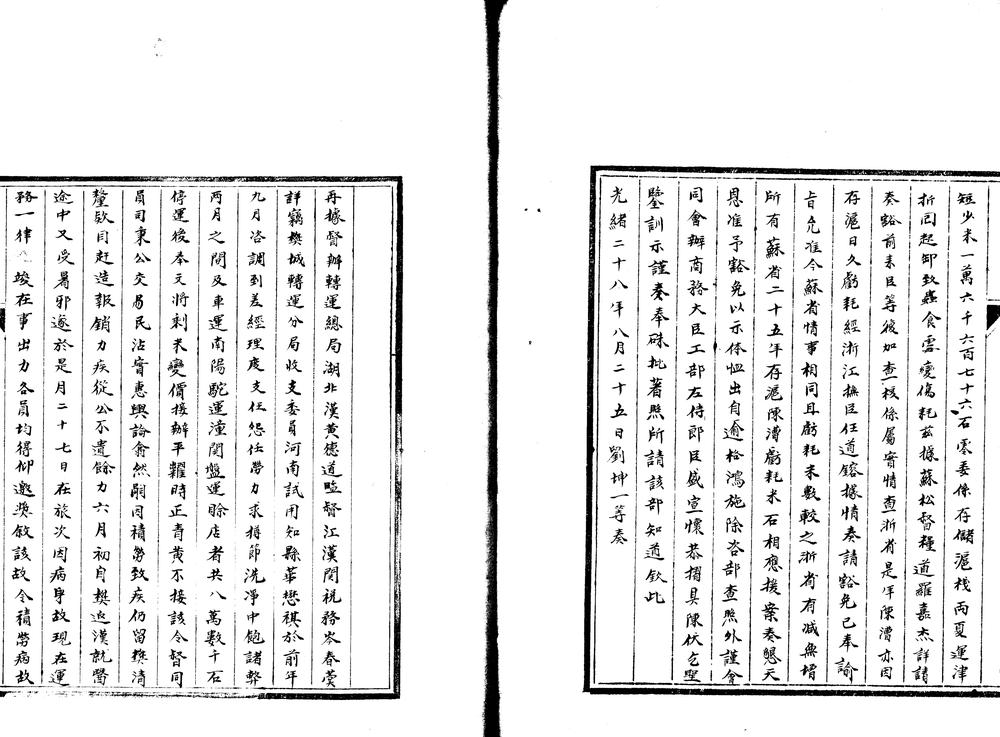 短少米一萬六千六百七十六石零委係存儲滬棧兩夏運津
折回起卸致蟲食霉變傷耗茲據蘇松督糧道羅嘉杰詳請
奏豁前來臣等復加查核係屬實情查浙省是年陳漕亦因
存滬日久虧耗經浙江撫臣任道鎔據情奏請豁免已奉諭
旨允准今蘇省情事相同且虧耗米數較之浙省有減無增
所有蘇省二十五年存滬陳漕虧耗米石相應援案奏懇天
恩准予豁免以示体恤出自逾格鴻施除咨部查照外謹會
同會辦商務大臣工部左侍郎臣盛宣懷恭摺具陳伏乞聖
鑒訓示謹奏奉硃批著照所請該部知道欽此
光緒二十八年八月二十五日劉坤一等奏
再據督辦轉運總局湖北漢黃德道監督江漢関稅務岑春蓂
詳竊樊城轉運分局收支委員河南試用知縣華懋祺於前年
九月咨調到差經理度支任怨任勞力求撙節洗淨中飽諸弊
兩月之間及車運南陽駝運潼関盤運賒店者共八萬數千石
停運後奉文將剩米變價接辦平糶時正青黃不接該令督同
員司秉公交易民沾實惠輿論翕然嗣因積勞致疾仍留樊清
釐欵目赶造報銷力疾從公不遺餘力六月初自樊返漢就醫
途中又受暑邪遂於是月二十七日在旅次因病身故現在運
務一律竣在事出力各員均得仰邀獎敘該故令積勞病故